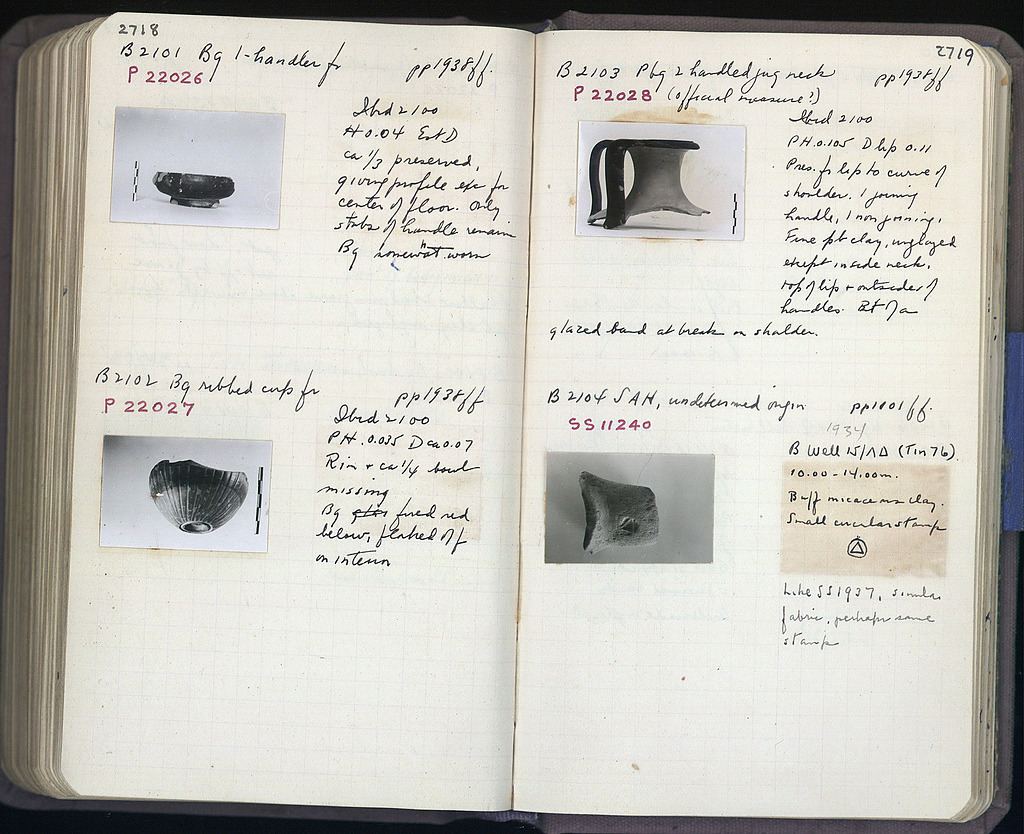 2718
B 2101 Bg 1-handler fr
pp 1938 ff.
P 22026
Ibid 2100
H 0.04 Est D
ca 1/3 preserved,
giving profile exc for
center of floor. Only
stubs of handle remain
Bg somewhat worn
B 2102 Bg ribbed cup fr
pp 1938 ff
P 22027
Ibid 2100
PH. 0.035 D ca 0.07
Rim + ca 1/4 bowl
missing
Bg fired red
below, flaked off
on interior
2719
B 2103 Pbg 2 handled jug neck
pp 1938 ff
P 22028 (official measure?)
Ibid 2100
PH. 0.105 D lip 0.11
Pres. fr lip to curve of
shoulder. 1 joining
handle, 1 non joining.
Fine pt clay, unglazed
except inside neck,
top of lip + outsides of
handles. Bit of a
glazed band at break on shoulder.
B 2104 SAH, undetermined origin
pp 1801 ff.
SS 11240
1934
B Well 15/ΛΔ (Tin 76)
10.00 - 14.00 m.
Buff micaceous clay.
Small circular stamp
Δ
Like SS 1937, similar
fabric, perhaps same
stamp